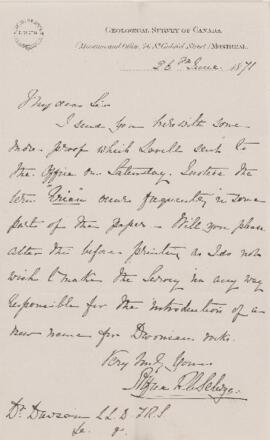 GEOLOGICAL SURVEY OF CANADA
(Museum and Office, 76, St Gabriel Street,) MONTREAL.
26th June 1871
My dear Sir
I send you herewith some
more proof which Lovell sent to
the Office on Saturday. I notice the
term "Erian" occurs frequently in some
parts of the paper. Will you please
alter this before printing as I do not
wish to make the Survey in any way
responsible for the introduction of a
new name for Devonian rocks.
Very truly Yours
Alfred R. C. Selwyn
Dr. Dawson LL.D F.R.S
&c.